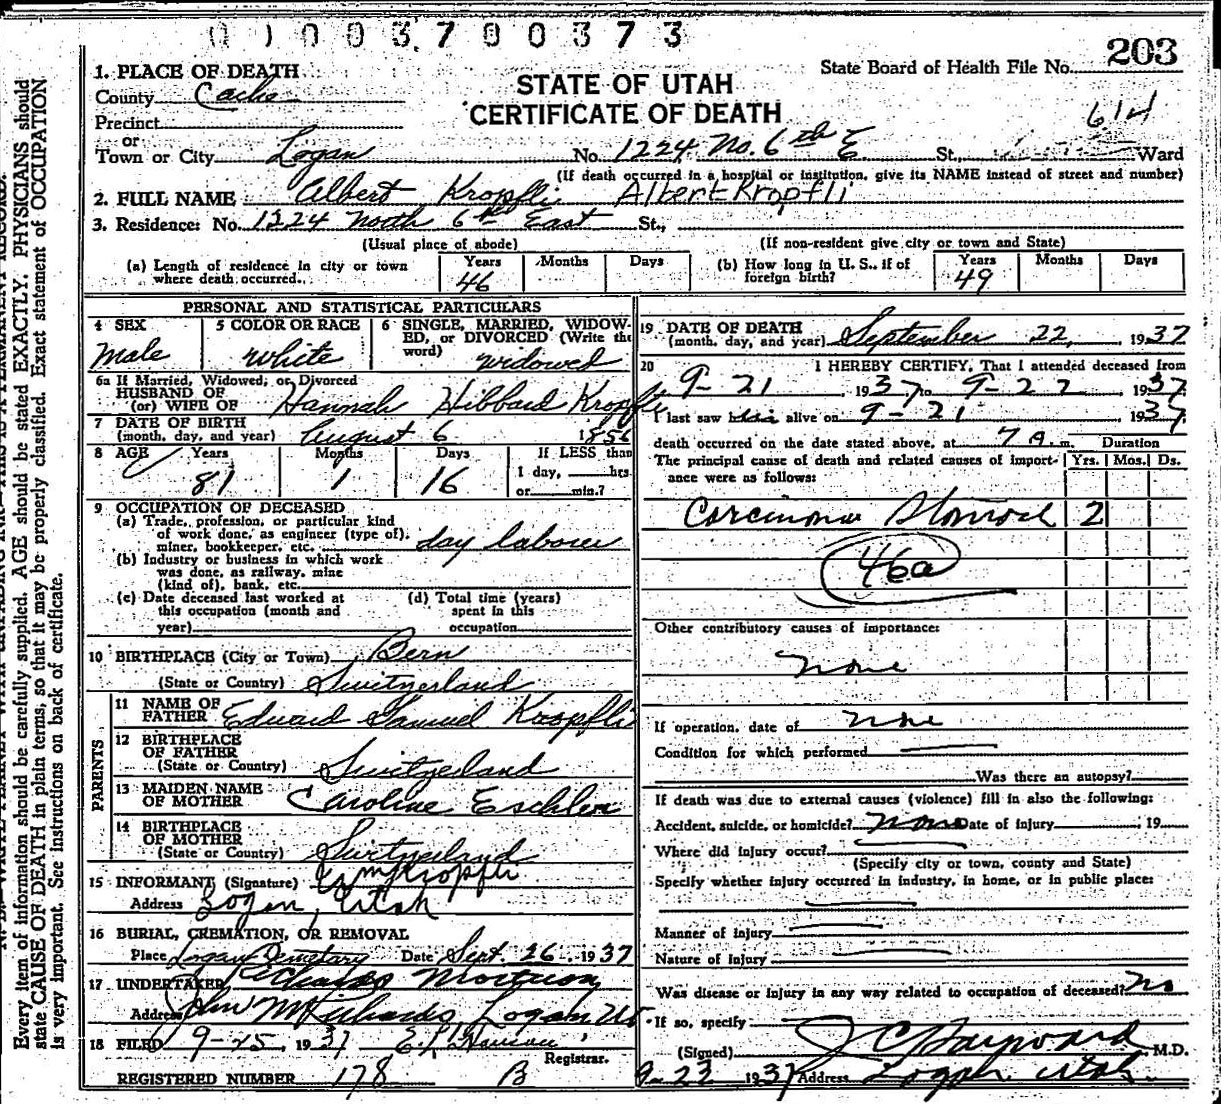 0 1 0 0 3 7 0 0 3 7 3
203
State Board of Health File No.
STATE OF UTAH
CERTIFICATE OF DEATH
1. PLACE OF DEATH
County Cache
Precinct
or
Town or City Logan No. 1224 No. 6th E St., Ward
614
(If death occurred in a hospital or institution, give its NAME instead of street and number)
2. FULL NAME Albert Kropfli Albert Kropfli
3. Residence: No. 1224 North 6th East St.,
(Usual place of abode) (If non-resident give city or town and State)
(a) Length of residence in city or town where death occurred. Years 46 Months Days
(b) How long in U. S., if of foreign birth? Years 49 Months Days
PERSONAL AND STATISTICAL PARTICULARS
4 SEX Male
5 COLOR OR RACE White
6 SINGLE, MARRIED, WIDOWED, OR DIVORCED (Write the word) widowed
6a If Married, Widowed, or Divorced
HUSBAND OF
(or) WIFE OF Hannah Hibbard Kropfli
7 DATE OF BIRTH
(month, day, and year) August 6 1856
8 AGE Years 81 Months 1 Days 16 If LESS than
1 day, hrs.
or min.?
9 OCCUPATION OF DECEASED
(a) Trade, profession, or particular kind
of work done, as engineer (type of),
miner, bookkeeper, etc. day laborer
(b) Industry or business in which work
was done, as railway, mine
(kind of), bank, etc.
(c) Date deceased last worked at
this occupation (month and
year)
(d) Total time (years)
spent in this
occupation
10 BIRTHPLACE (City or Town) Bern
(State or Country) Switzerland
PARENTS
11 NAME OF
FATHER Eduard Samuel Kropfli
12 BIRTHPLACE
OF FATHER
(State or Country) Switzerland
13 MAIDEN NAME
OF MOTHER Caroline Eschler
14 BIRTHPLACE
OF MOTHER
(State or Country) Switzerland
15 INFORMANT (Signature) Kropfli
Address Logan, Utah
16 BURIAL, CREMATION, OR REMOVAL
Place Logan Cemetary Date Sept. 26 1937
17 UNDERTAKER Richards Mortuary
Address John M Richards Logan Ut
18 FILED 9-25, 1937
Registrar.
REGISTERED NUMBER 178 B
19 DATE OF DEATH
(month, day, and year) September 22, 1937
20 I HEREBY CERTIFY, That I attended deceased from
9-21 1937, to 9-22 1937
I last saw him alive on 9-21 1937,
death occurred on the date stated above, at 7 a. m. Duration
The principal cause of death and related causes of importance were as follows: Yrs. Mos. Ds.
Carcinoma Stomach 2
46a
Other contributory causes of importance:
none
If operation, date of none
Condition for which performed
Was there an autopsy?
If death was due to external causes (violence) fill in also the following:
Accident, suicide, or homicide? none Date of injury , 19
Where did injury occur?
(Specify city or town, county and State)
Specify whether injury occurred in industry, in home, or in public place:
Manner of injury
Nature of Injury
Was disease or injury in any way related to occupation of deceased? no
If so, specify
(Signed) J C Hayward M.D.
9-23 1937 Address Logan Utah.
Every item of information should be carefully supplied. AGE should be stated EXACTLY. PHYSICIANS should
state CAUSE OF DEATH in plain terms, so that it may be properly classified. Exact statement of OCCUPATION
is very important. See instructions on back of certificate.